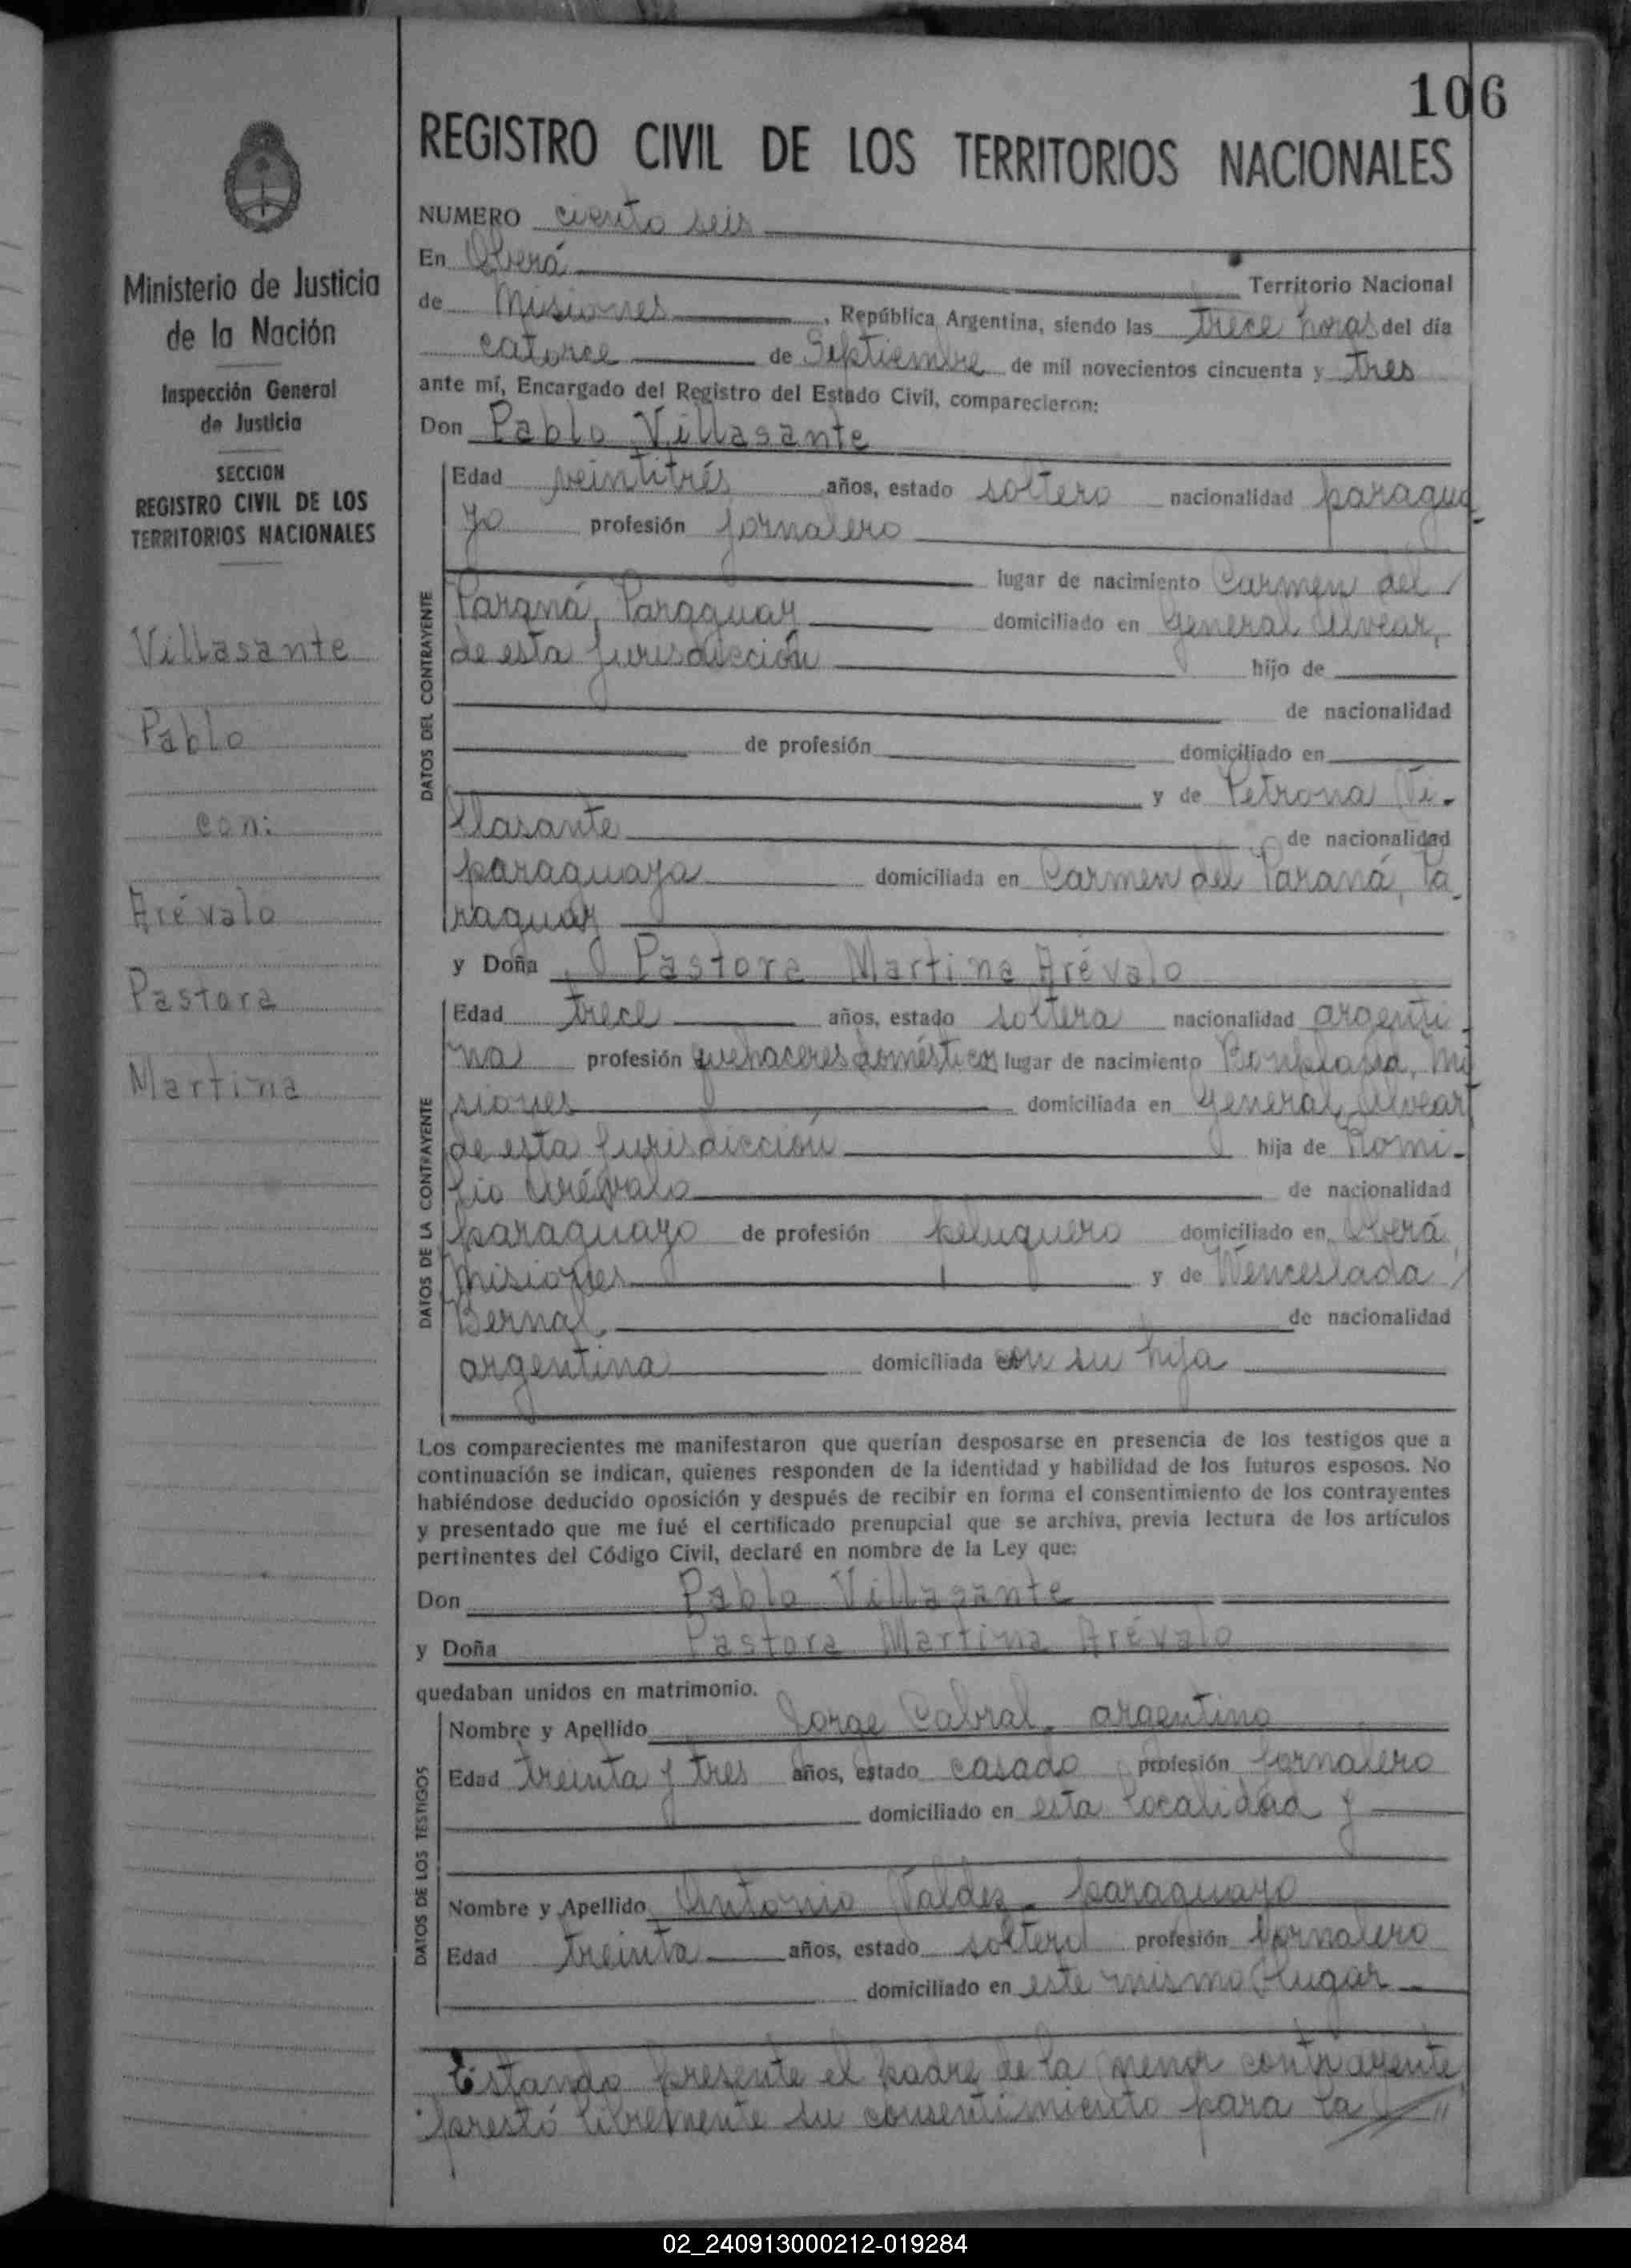 106
REGISTRO CIVIL DE LOS TERRITORIOS NACIONALES
Ministerio de Justicia
de la Nación
Inspección General
de Justicia
SECCION
REGISTRO CIVIL DE LOS
TERRITORIOS NACIONALES
Villasante
Pablo
con:
Arévalo
Pastora
Martina
NUMERO ciento seis
En Oberá Territorio Nacional
de Misiones, República Argentina, siendo las trece horas del día
catorce de Septiembre de mil novecientos cincuenta y tres
ante mí, Encargado del Registro del Estado Civil, comparecieron:
Don Pablo Villasante
DATOS DEL CONTRAYENTE
Edad veintitrés años, estado soltero nacionalidad paragua-
yo profesión jornalero
lugar de nacimiento Carmen del
Paraná, Paraguay domiciliado en General Alvear,
de esta jurisdicción hijo de
de nacionalidad
de profesión domiciliado en
y de Petrona Vi-
llasante de nacionalidad
paraguaya domiciliada en Carmen del Paraná, Pa-
raguay
y Doña Pastora Martina Arévalo
DATOS DE LA CONTRAYENTE
Edad trece años, estado soltera nacionalidad argenti-
na profesión quehaceres domésticos lugar de nacimiento Bonpland, Mi
siones domiciliada en General Alvear
de esta jurisdicción hija de Romi-
lio Arévalo de nacionalidad
paraguayo de profesión peluquero domiciliado en Oberá,
Misiones y de Wenceslada
Bernal de nacionalidad
argentina domiciliada con su hija
Los comparecientes me manifestaron que querían desposarse en presencia de los testigos que a
continuación se indican, quienes responden de la identidad y habilidad de los futuros esposos. No
habiéndose deducido oposición y después de recibir en forma el consentimiento de los contrayentes
y presentado que me fué el certificado prenupcial que se archiva, previa lectura de los artículos
pertinentes del Código Civil, declaré en nombre de la Ley que:
Don Pablo Villasante
y Doña Pastora Martina Arévalo
quedaban unidos en matrimonio.
DATOS DE LOS TESTIGOS
Nombre y Apellido Jorge Cabral, argentino
Edad treinta y tres años, estado casado profesión jornalero
domiciliado en esta localidad y
Nombre y Apellido Antonio Valdez, paraguayo
Edad treinta años, estado soltero profesión jornalero
domiciliado en este mismo lugar
Estando presente el padre de la menor contrayente
prestó libremente su consentimiento para la //
02_240913000212-019284